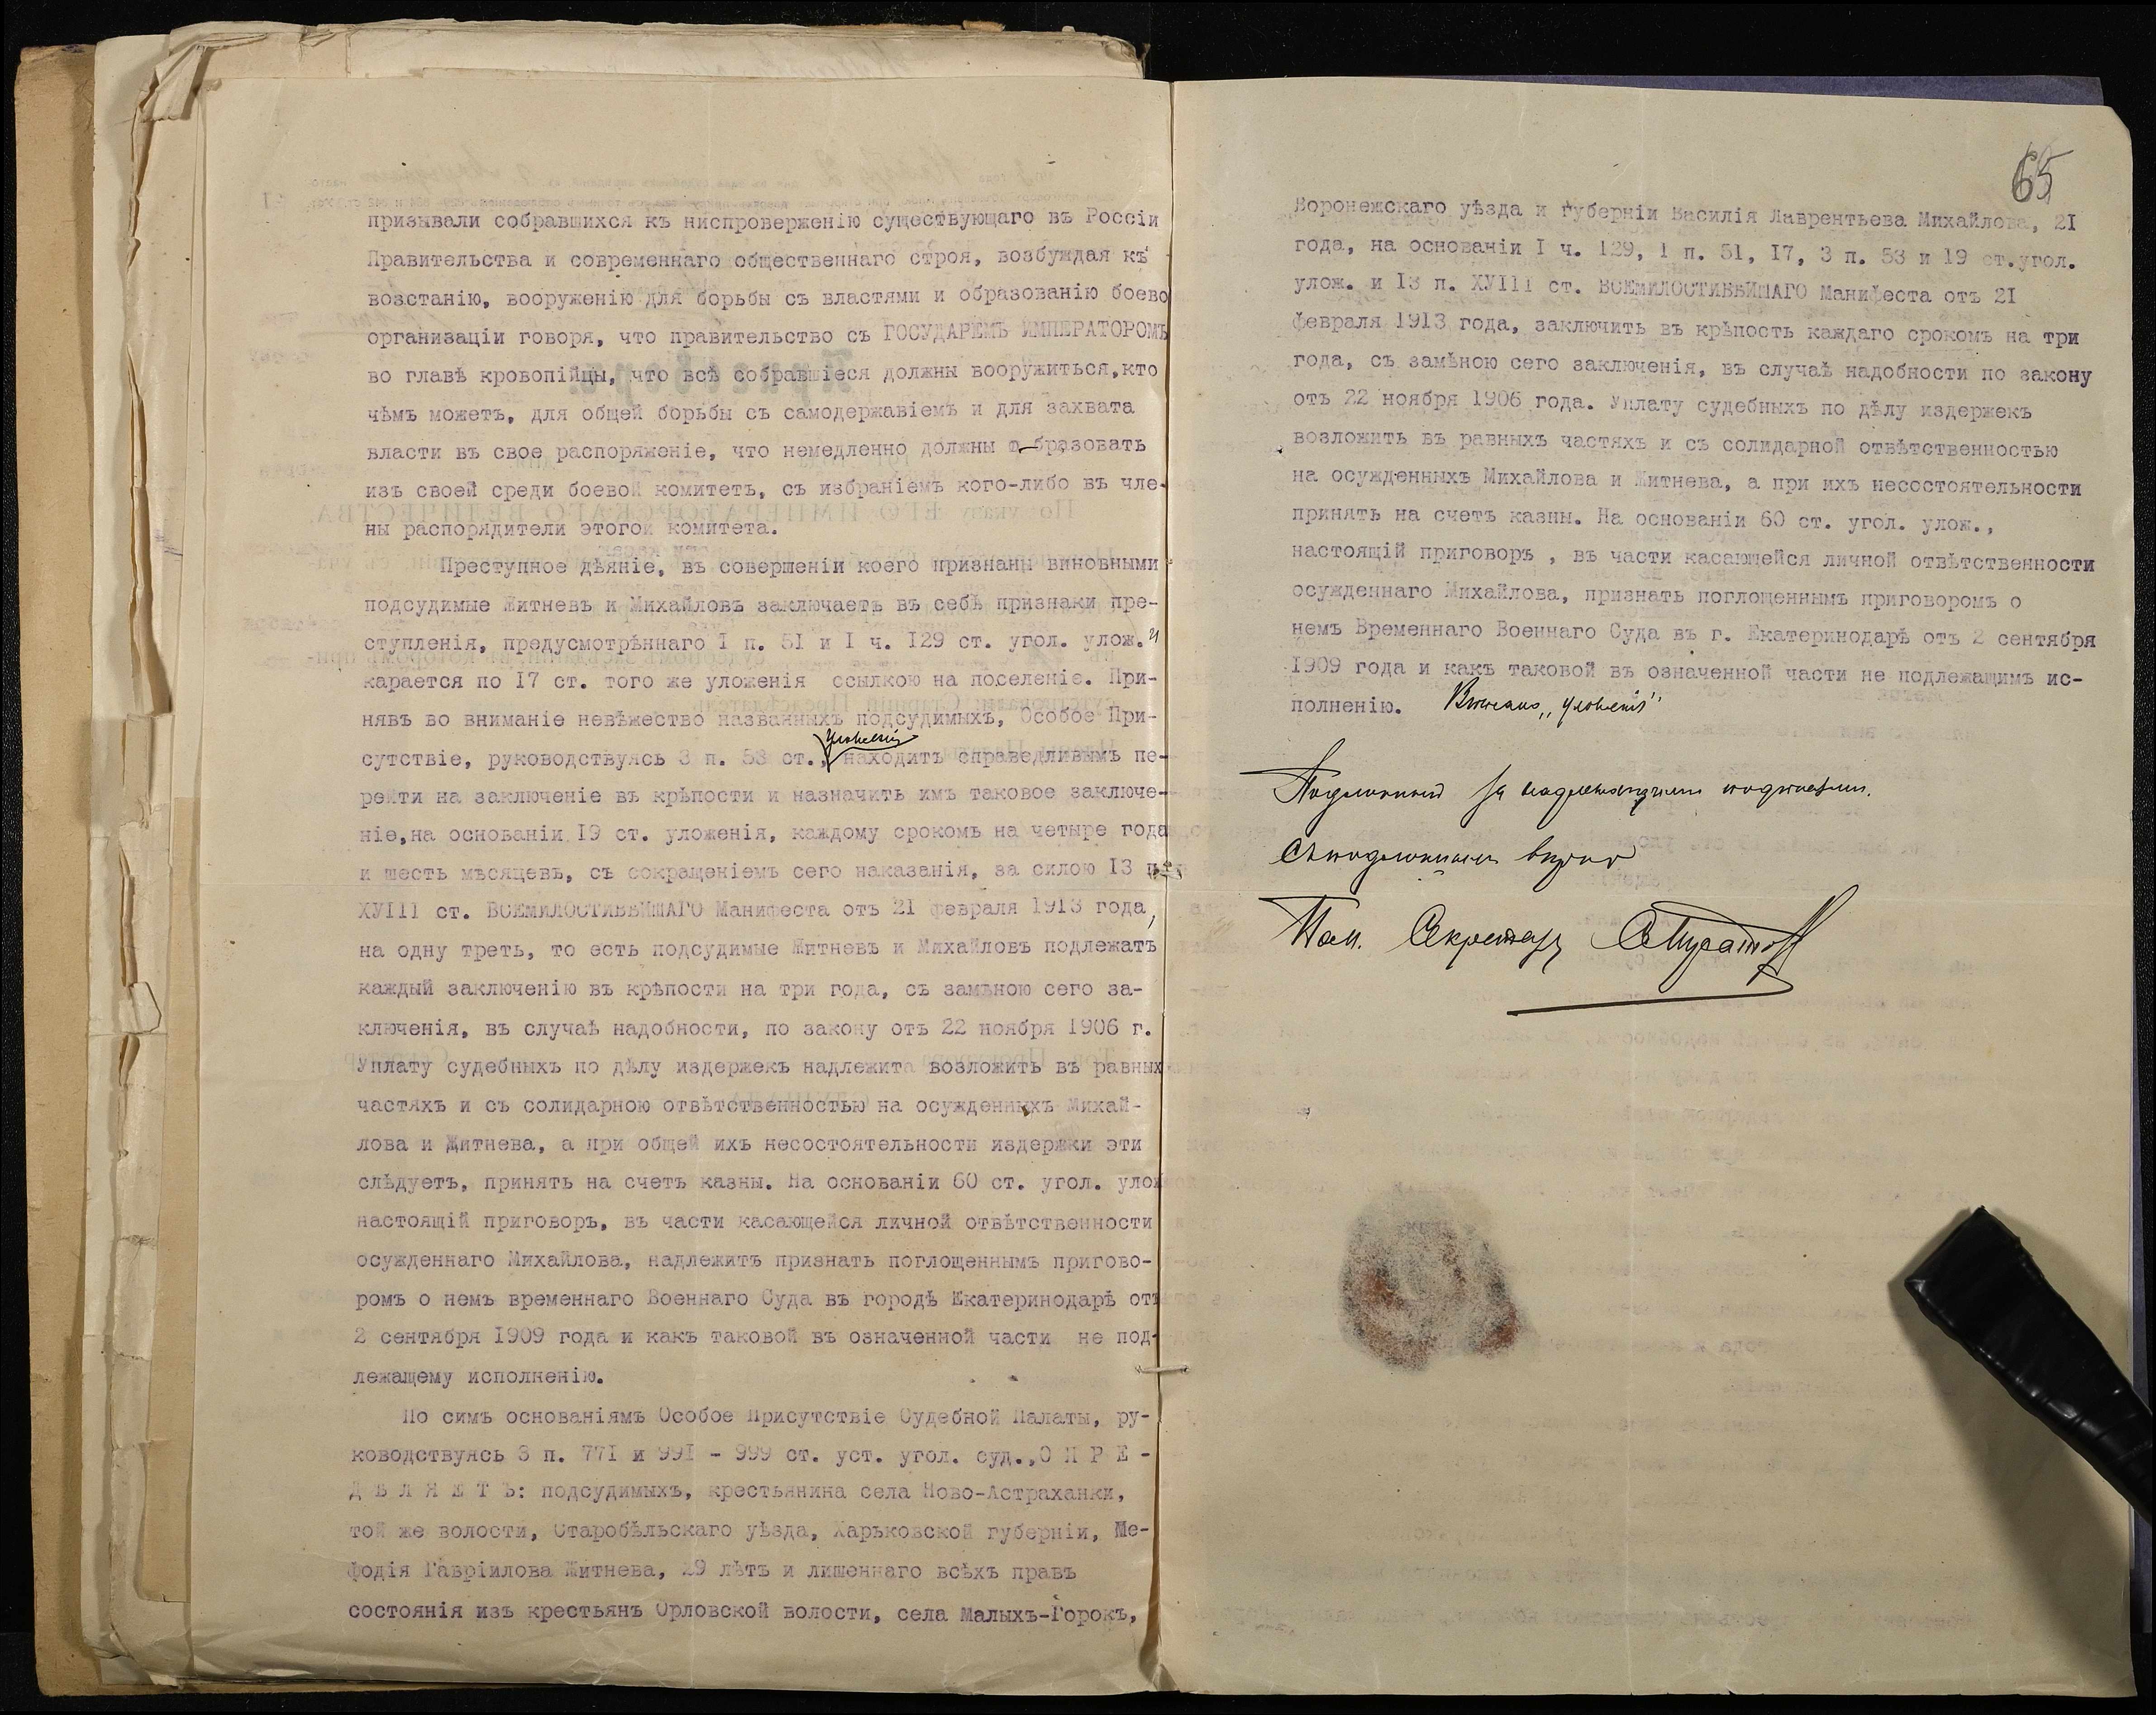 призывали собравшихся къ ниспроверженію существующаго въ Россіи
Правительства и современнаго общественнаго строя, возбуждая къ
возстанію, вооруженію для борьбы съ властями и образованію боево
организаціи говоря, что правительство съ ГОСУДАРЕМЪ ИМПЕРАТОРОМЪ
во главѣ кровопійцы, что всѣ собравшіеся должны вооружиться,кто
чѣмъ можетъ, для общей борьбы съ самодержавіемъ и для захвата
власти въ свое распоряженіе, что немедленно должны образовать
изъ своей среди боевой комитетъ, съ избраніемъ кого-либо въ чле-
ны распорядители этогой комитета.
Преступное дѣяніе, въ совершеніи коего признаны виновными
подсудимые Житневъ и Михайловъ заключаетъ въ себѣ признаки пре-
ступленія, предусмотрѣннаго I п. 51 и I ч. 129 ст. угол. улож. и
карается по 17 ст. того же уложенія ссылкою на поселеніе. При-
нявъ во вниманіе невѣжество названныхъ подсудимыхъ, Особое При-
сутствіе, руководствуясь 3 п. 53 ст., уложенія находитъ справедливымъ пе-
рейти на заключеніе въ крѣпости и назначить имъ таковое заключе-
ніе,на основаніи 19 ст. уложенія, каждому срокомъ на четыре года
и шесть мѣсяцевъ, съ сокращеніемъ сего наказанія, за силою 13 п.
ХУІІІ ст. ВСЕМИЛОСТИВѢЙШАГО Манифеста отъ 21 февраля 1913 года,
на одну треть, то есть подсудимые Житневъ и Михайловъ подлежатъ
каждый заключенію въ крѣпости на три года, съ замѣною сего за-
ключенія, въ случаѣ надобности, по закону отъ 22 ноября 1906 г.
Уплату судебныхъ по дѣлу издержекъ надлежита возложить въ равныхъ
частяхъ и съ солидарною отвѣтственностью на осужденныхъ Михай-
лова и Житнева, а при общей ихъ несостоятельности издержки эти
слѣдуетъ, принять на счетъ казны. На основаніи 60 ст. угол. улож
настоящій приговоръ, въ части касающейся личной отвѣтственности
осужденнаго Михайлова, надлежитъ признать поглощеннымъ пригово-
ромъ о немъ временнаго Военнаго Суда въ городѣ Екатеринодарѣ отъ
2 сентября 1909 года и какъ таковой въ означенной части не под-
лежащему исполненію.
По симъ основаніямъ Особое Присутствіе Судебной Палаты, ру-
ководствуясь 3 п. 771 и 991 - 999 ст. уст. угол. суд.,О П Р Е -
Д Ѣ Л Я Е Т Ъ: подсудимыхъ, крестьянина села Ново-Астраханки,
той же волости, Старобѣльскаго уѣзда, Харьковской губерніи, Ме-
фодія Гавріилова Житнева, 29 лѣтъ и лишеннаго всѣхъ правъ
состоянія изъ крестьянъ Орловской волости, села Малыхъ-Горокъ,
65
Воронежскаго уѣзда и губерніи Василія Лаврентьева Михайлова, 21
года, на основаніи I ч. 129, 1 п. 51, 17, 3 п. 53 и 19 ст.угол.
улож. и 13 п. ХУІІІ ст. ВСЕМИЛОСТИВѢЙШАГО Манифеста отъ 21
февраля 1913 года, заключить въ крѣпость каждаго срокомъ на три
года, съ замѣною сего заключенія, въ случаѣ надобности по закону
отъ 22 ноября 1906 года. Уплату судебныхъ по дѣлу издержекъ
возложить въ равныхъ частяхъ и съ солидарной отвѣтственностью
на осужденныхъ Михайлова и Житнева, а при ихъ несостоятельности
принять на счетъ казны. На основаніи 60 ст. угол. улож.,
настоящій приговоръ , въ части касающейся личной отвѣтственности
осужденнаго Михайлова, признать поглощеннымъ приговоромъ о
немъ Временнаго Военнаго Суда въ г. Екатеринодарѣ отъ 2 сентября
1909 года и какъ таковой въ означенной части не подлежащимъ ис-
полненію. Вписано „уложенія"
Подлинный за надлежащими подписями.
Съ подлиннымъ вѣрно
Пом. Секретаря